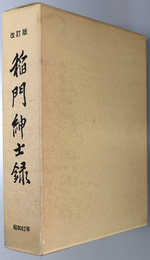 改訂版
稲門紳士録
昭和62年